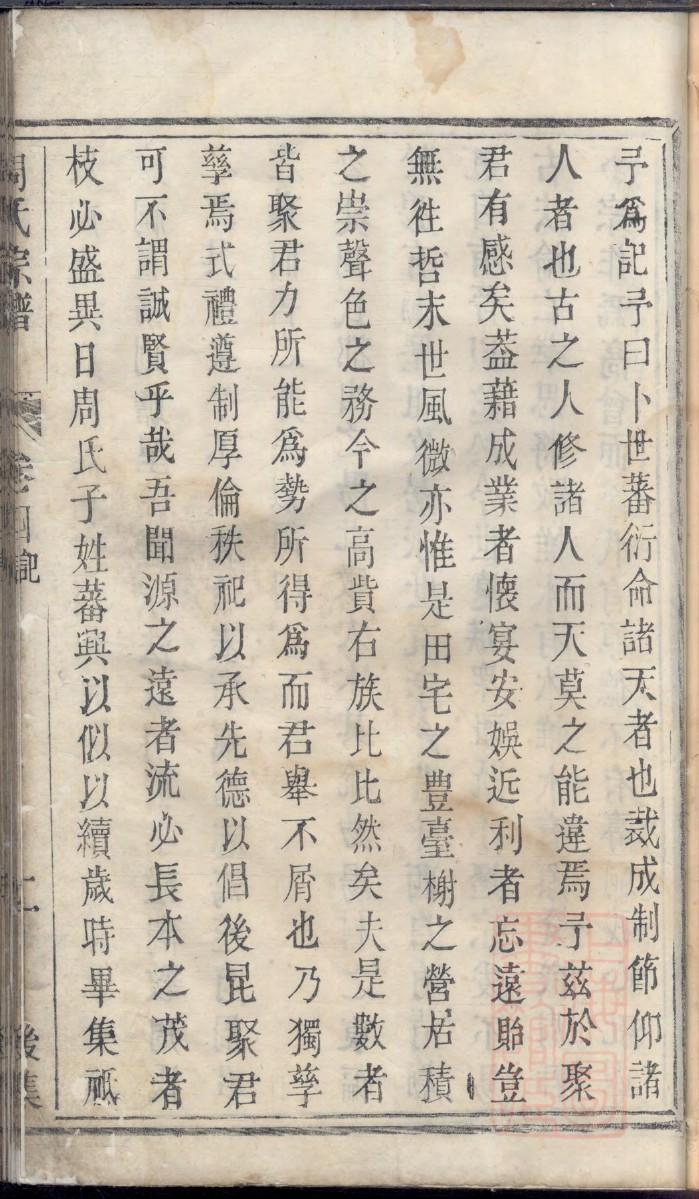 予爲記予曰卜世蕃衍命諸天者也裁成制節仰諸
人者也古之人修諸人而天莫之能違焉予茲於聚
君有感矣葢藉成業者懷宴安娛近利者忘遠貽豈
無徃哲末世風微亦惟是田宅之豊臺榭之營居積
之崇聲色之務今之高貲右族比比然矣夫是數者
皆聚君力所能爲勢所得爲而君舉不屑也乃獨孳
孳焉式禮遵制厚倫秩祀以承先德以倡後昆聚君
可不謂誠賢乎哉吾聞源之遠者流必長本之茂者
枝必盛異日周氏子姓蕃興以似以續歲時畢集祗
周氏宗譜 卷四記 二 後集